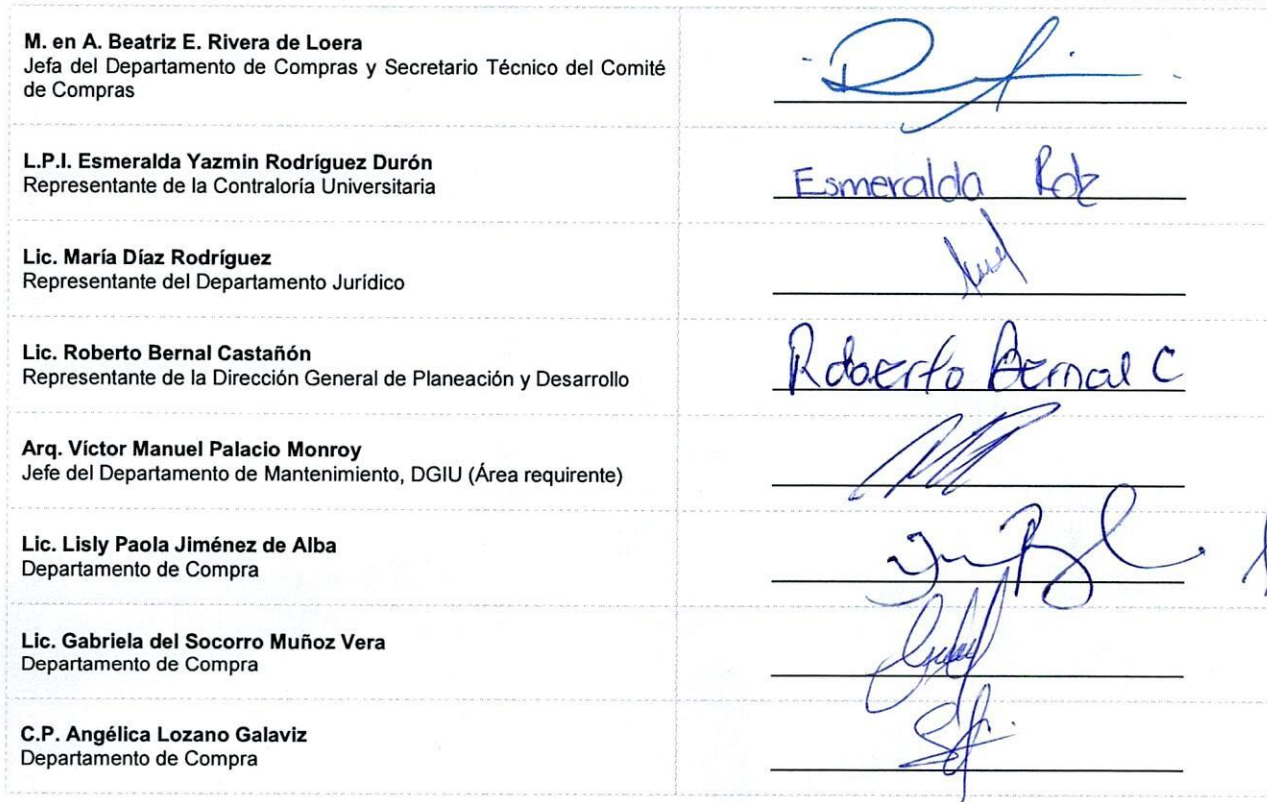 M. en A. Beatriz E. Rivera de Loera
Jefa del Departamento de Compras y Secretario Técnico del Comité
de Compras
L.P.I. Esmeralda Yazmin Rodríguez Durón
Representante de la Contraloría Universitaria
Esmeralda Rdz
Lic. María Díaz Rodríguez
Representante del Departamento Jurídico
Lic. Roberto Bernal Castañón
Representante de la Dirección General de Planeación y Desarrollo
Roberto Bernal C
Arq. Víctor Manuel Palacio Monroy
Jefe del Departamento de Mantenimiento, DGIU (Área requirente)
Lic. Lisly Paola Jiménez de Alba
Departamento de Compra
Lic. Gabriela del Socorro Muñoz Vera
Departamento de Compra
C.P. Angélica Lozano Galaviz
Departamento de Compra